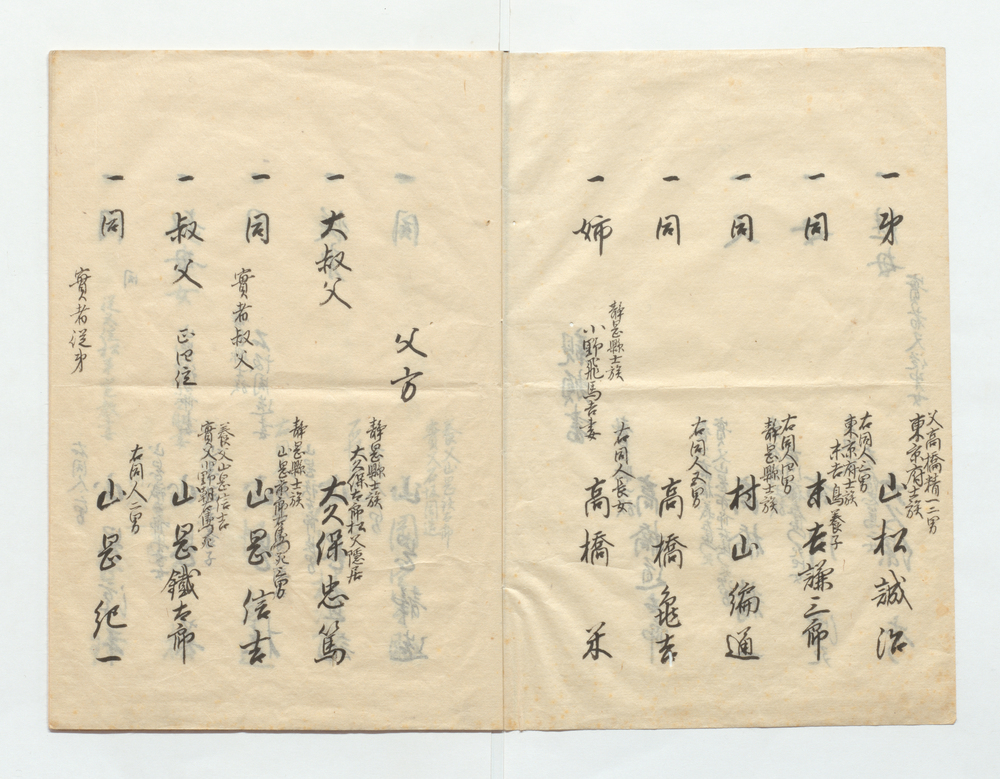 一 弟
父高橋精一二男
東京府士族
山松誠治
一 同
右同人三男
東京府士族
末吉鳥養子
末吉謙三郎
一 同
右同人四男
静岡縣士族
村山編通
一 同
右同人五男
高橋龜吉
一 姉
静岡縣士族
小野飛馬吉妻
右同人長女
高橋米
父方
一 大叔父
静岡縣士族
大久保右節松父隠居
大久保忠篤
一 同
實者叔父
静岡縣士族
山岡信吉
一 叔父
正四位
養父山岡信吉
山岡鐵太郎
一 同
實者従弟
右同人二男
山岡紀一